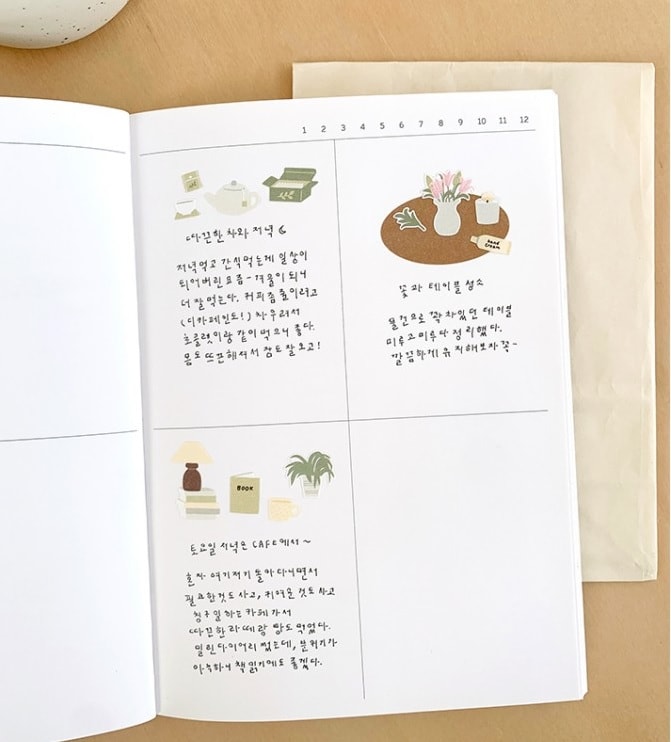 1 2 3 4 5 6 7 8 9 10 11 12
따끈한 차와 저녁
저녁먹고 간식먹는게 일상이
되어버린요즘~ 겨울이되니
더 잘먹는다. 커피좀줄이려고
(디카페인도!) 차우려서
초콜렛이랑 같이 먹으니 좋다.
몸도 뜨끈해져서 잠도 잘오고!
hand
cream
꽃과 테이블 청소
물건으로 꽉차있던 테이블
미루고미루다 정리했다.
깔끔하게 유지해보자꼭~
BOOK
토요일 저녁은 CAFE에서~
혼자 여기저기 돌아다니면서
필요한것도사고, 귀여운것도사고
친구일하는카페가서
따끈한라떼랑 빵도먹었다.
밀린다이어리 썼는데, 분위기가
아늑하니 책읽기에도 좋겠다.